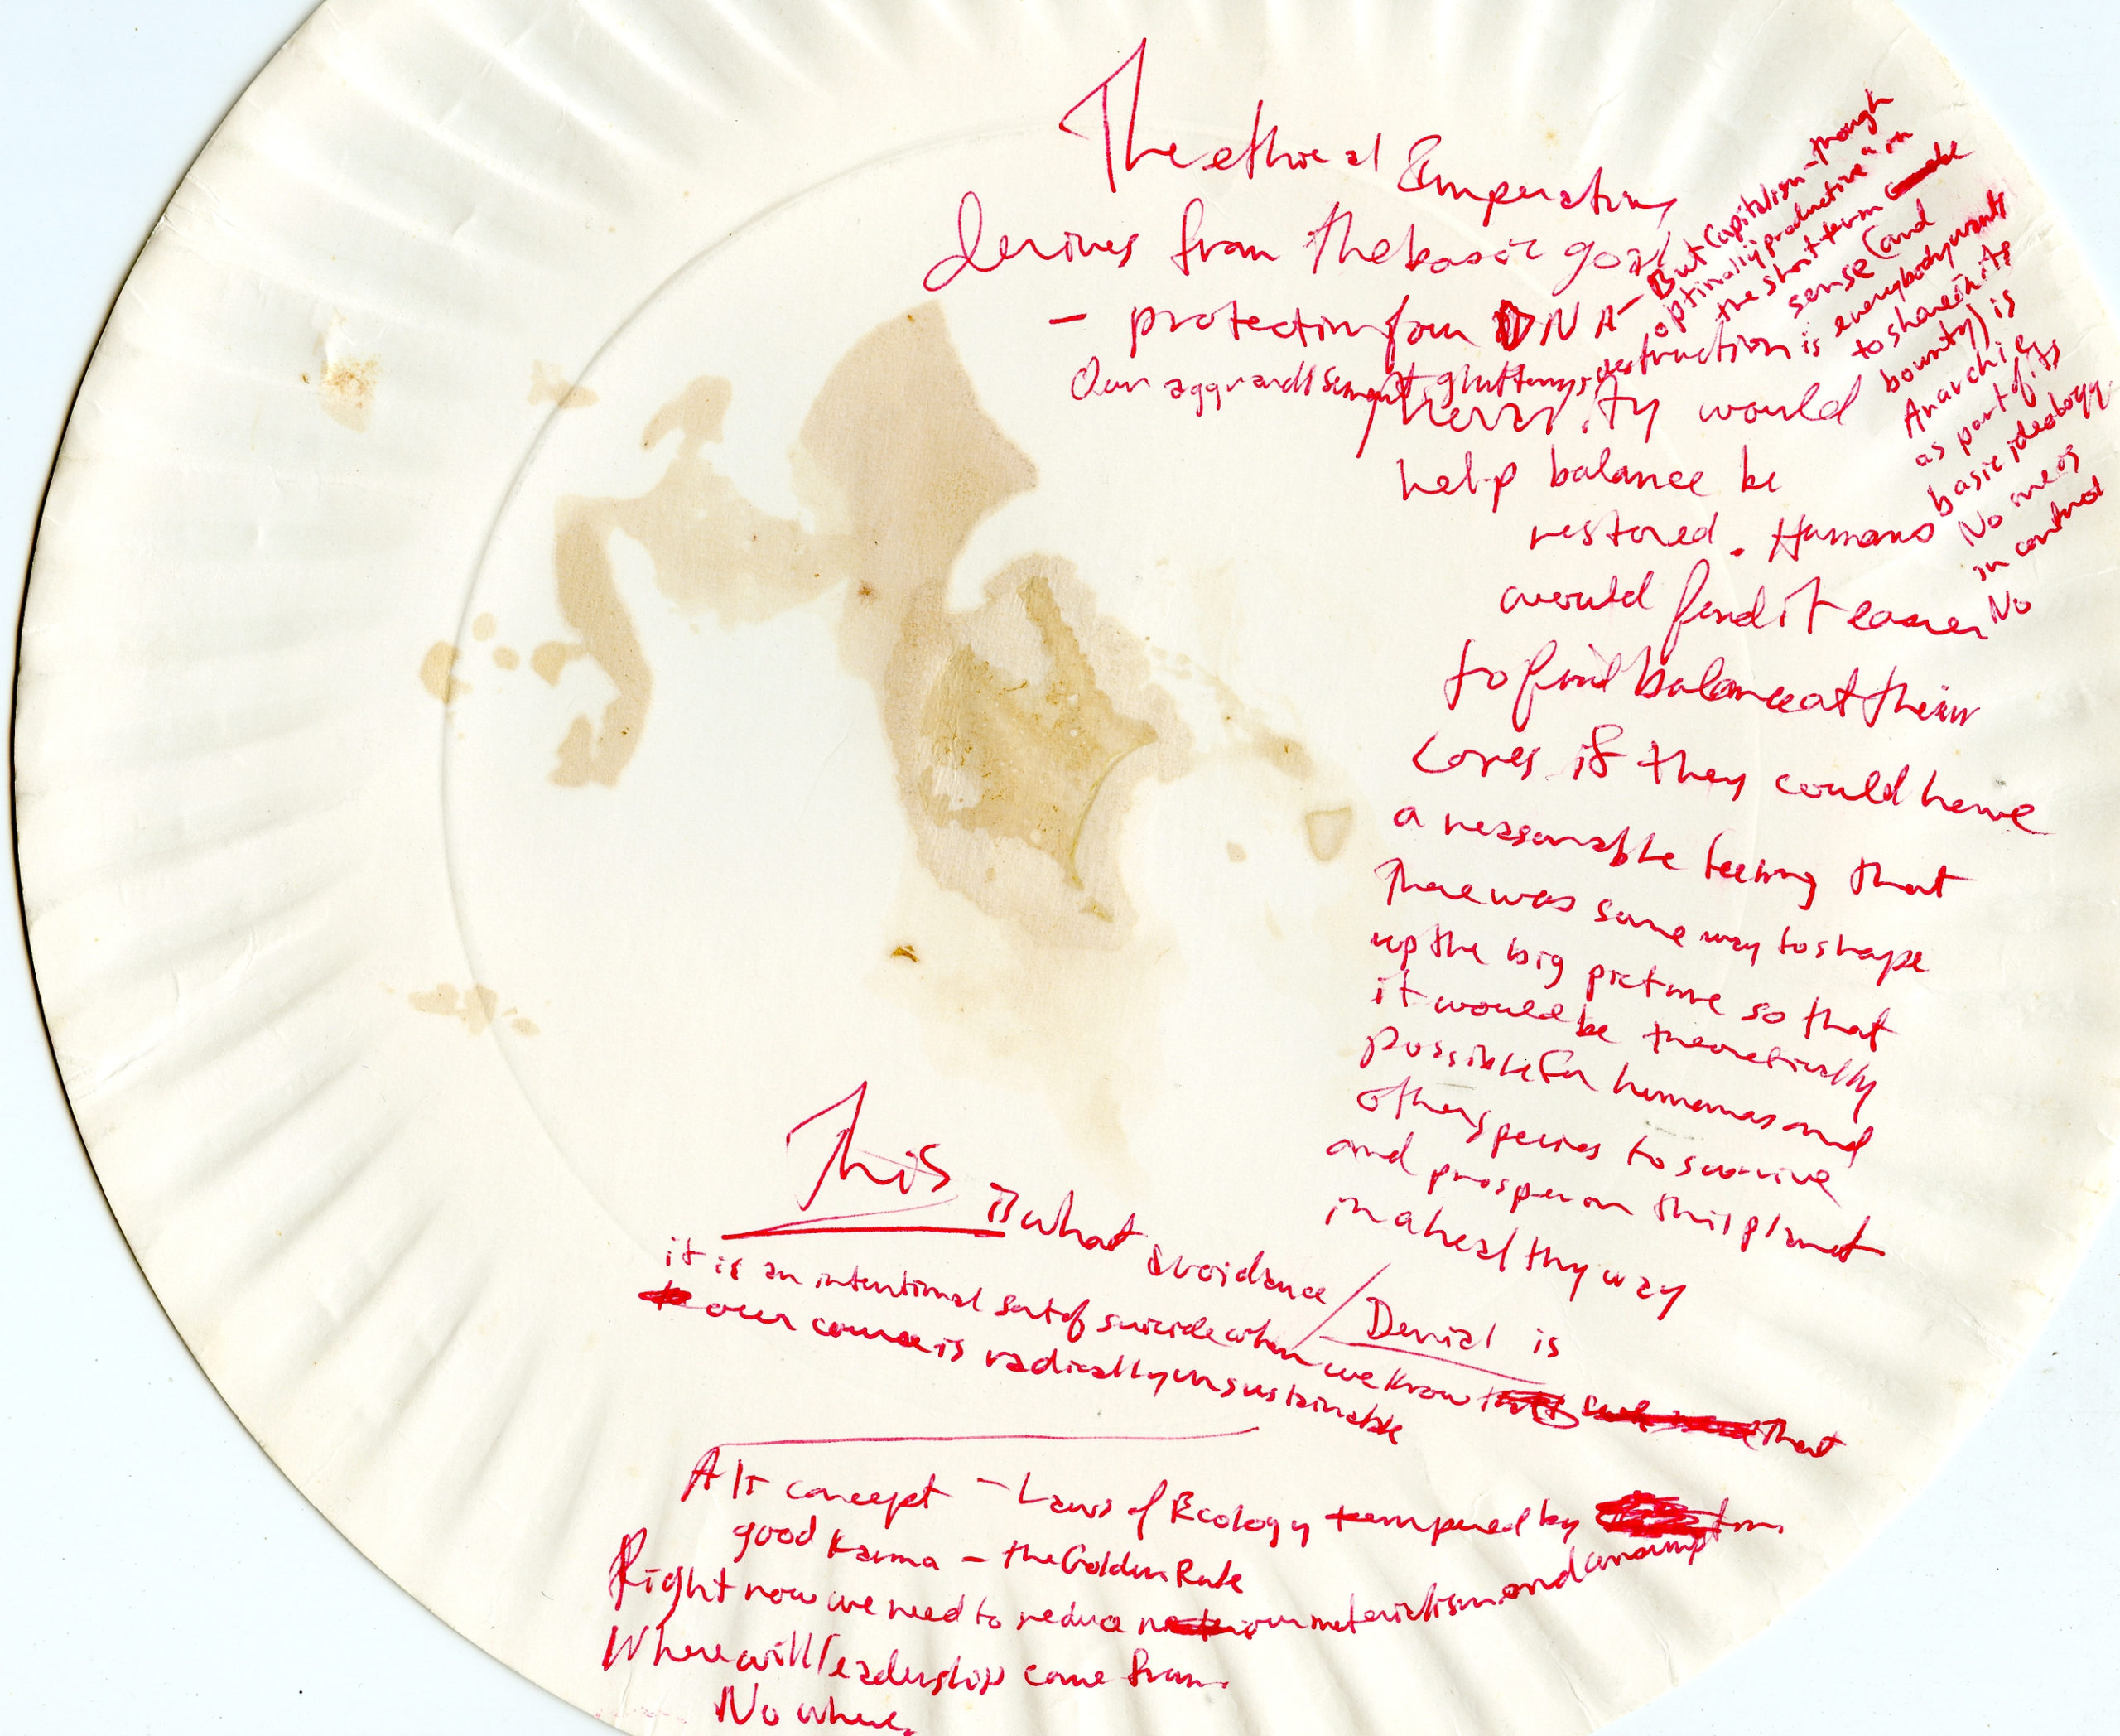 The ethical Imperative
derives from the basic goal
– protection four DNA –
Our aggrandisement, gluttony, destruction is
would
help balance be
restored. Humans
would find it easier
to find balance at their
cores if they could have
a reasonable feeling that
there was some way to shape
up the big picture so that
it would be theoretically
possible for humans and
other species to survive
and prosper on this planet
in a healthy way
But Capitalism – though
optimally "productive" in
the short term
sense (and
everybody wants
to share in its
bounty) is
Anarchic
as part of its
basic ideology.
No one is
in control
No
This is what avoidance / Denial is
it is an intentional sort of suicide when we know that
our course is radically unsustainable
Alt concept – Laws of Ecology tempered by
good Karma – the Golden Rule
Right now we need to reduce our materialism and consumption
Where will leadership come from
No where.